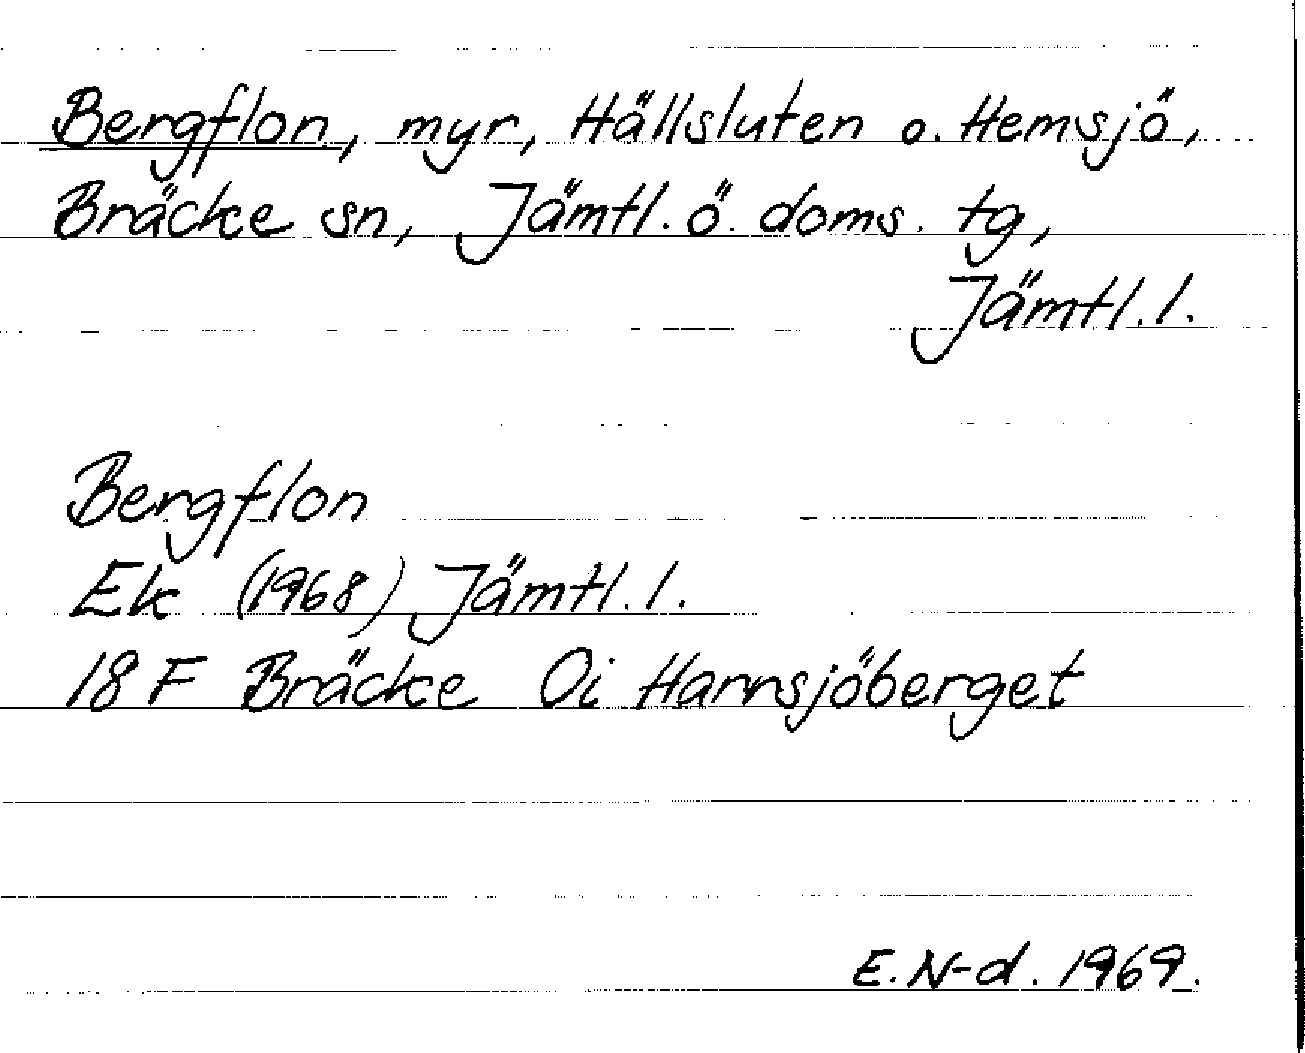 Bergflon, myr, Hällsluten o. Hemsjö,
Bräcke sn, Jämtl. ö. doms. tg,
Jämtl. l.
Bergflon
Ek (1968) Jämtl. l.
18 F Bräcke Oi Harrsjöberget
E. N-d. 1969.